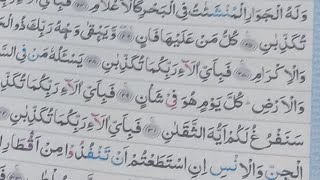 وَلَهُ الْجَوَارِ الْمُنْشَئٰتُ فِي الْبَحْرِ كَالْاَعْلَامِ
تُكَذِّبٰنِ كُلُّ مَنْ عَلَيْهَا فَانٍ وَّيَبْقٰى وَجْهُ رَبِّكَ ذُو الْجَ
وَالْاِكْرَامِ فَبِاَيِّ اٰلَآءِ رَبِّكُمَا تُكَذِّبٰنِ يَسْـَٔلُهٗ مَنْ فِي السَّ
وَالْاَرْضِ كُلَّ يَوْمٍ هُوَ فِيْ شَاْنٍ فَبِاَيِّ اٰلَآءِ رَبِّكُمَا تُ
سَنَفْرُغُ لَكُمْ اَيُّهَ الثَّقَلٰنِ فَبِاَيِّ اٰلَآءِ رَبِّكُمَا تُكَذِّ
الْجِنِّ وَالْاِنْسِ اِنِ اسْتَطَعْتُمْ اَنْ تَنْفُذُوْا مِنْ اَقْطَارِ